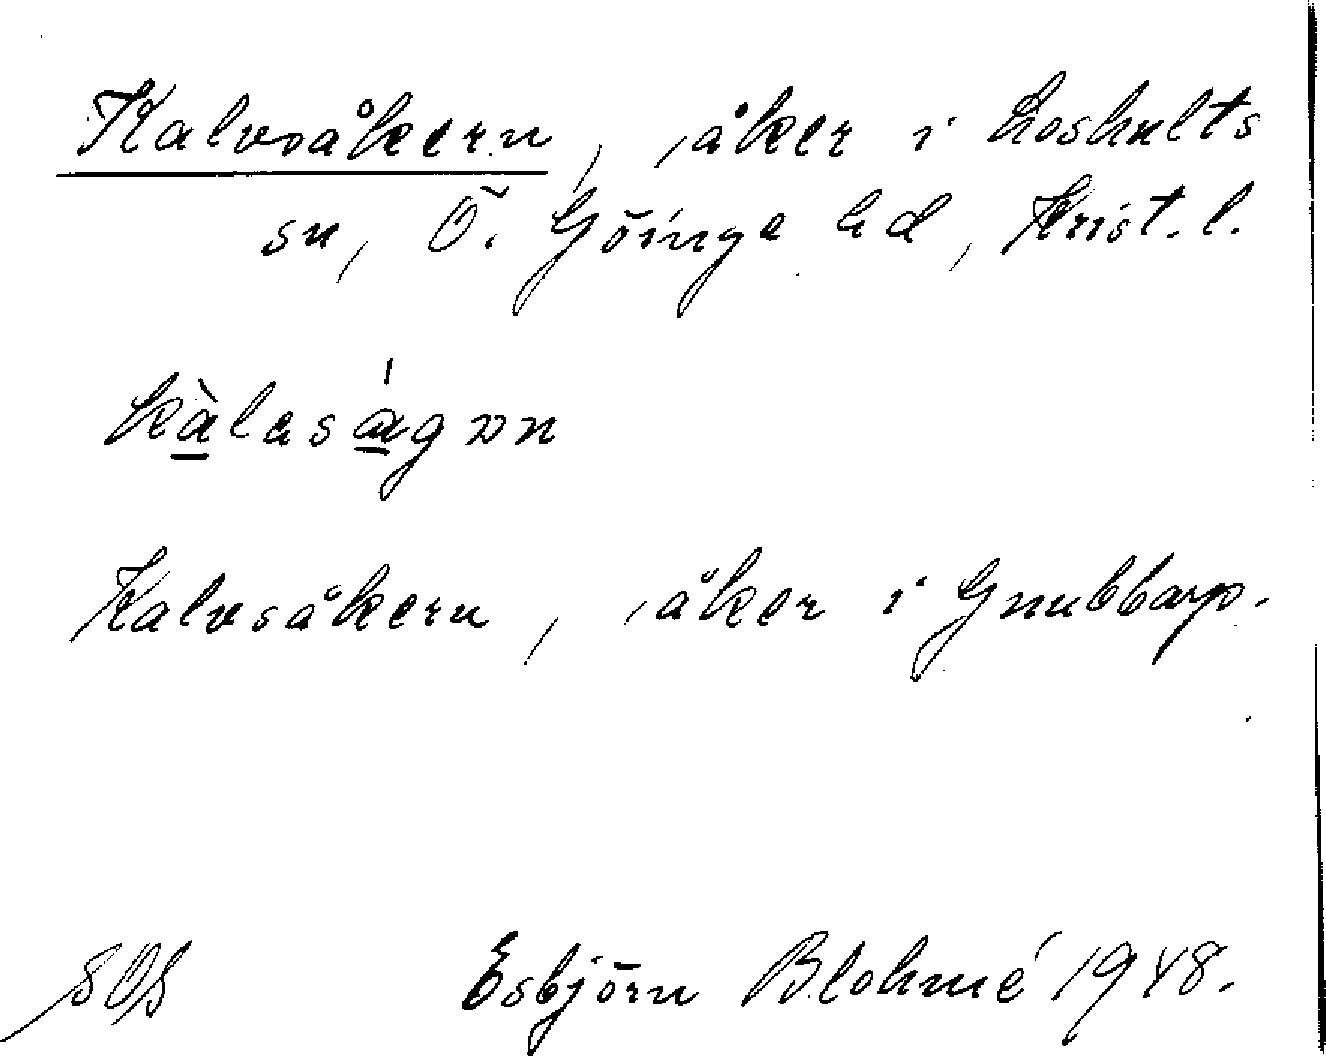 Kalvsåkern, åker i Loshults
sn, Ö. Göinge hd, Krist. l.
kàlaságən
Kalvsåkern, åker i Gnubbarp.
Esbjörn Blohmé 1948.